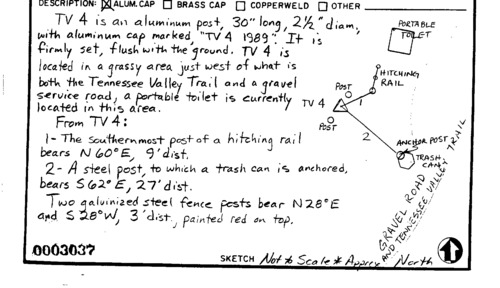 DESCRIPTION: ☒ ALUM.CAP ☐ BRASS CAP ☐ COPPERWELD ☐ OTHER
TV 4 is an aluminum post, 30" long, 2½" diam,
with aluminum cap marked, "TV 4 1989". It is
firmly set, flush with the ground. TV 4 is
located in a grassy area just west of what is
both the Tennessee Valley Trail and a gravel
service road, a portable toilet is currently
located in this area.
From TV 4:
1- The southernmost post of a hitching rail
bears N 60° E, 9' dist.
2- A steel post, to which a trash can is anchored,
bears S 62° E, 27' dist.
Two galuinized steel fence posts bear N 28° E
and S 28° W, 3' dist, painted red on top.
PORTABLE
TOILET
HITCHING
RAIL
POST
TV 4
1
POST
2
ANCHOR POST
TRASH
CAN
GRAVEL ROAD
AND TENNESSEE VALLEY TRAIL
0003037
SKETCH Not * Scale * Approx North